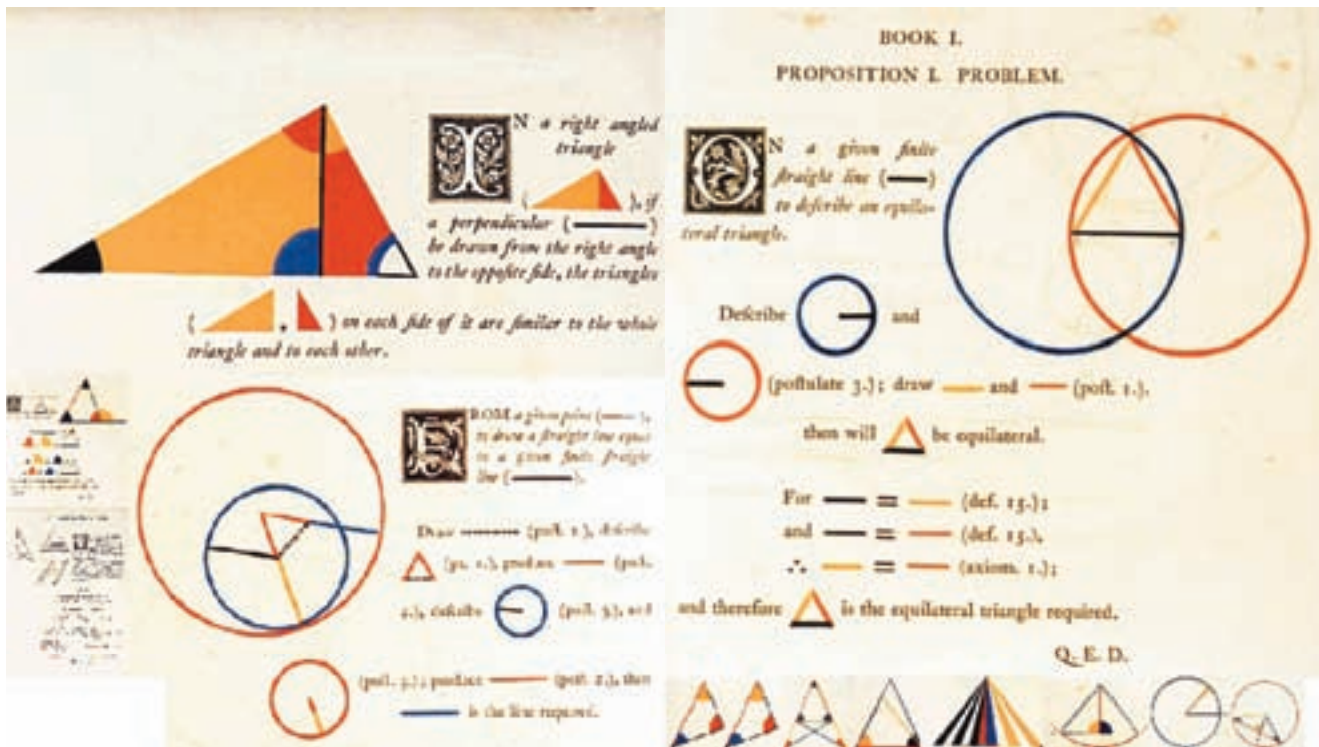 IN a right angled
triangle
( ), if
a perpendicular ( )
be drawn from the right angle
to the oppoſite ſide, the triangles
( , ) on each ſide of it are ſimilar to the whole
triangle and to each other.
FROM a given point ( ),
to draw a ſtraight line equal
to a given finite ſtraight
line ( ).
Draw (poſt. 1.), deſcribe
(pr. 1.), produce (poſt.
2.), deſcribe (poſt. 3.), and
(poſt. 3.); produce (poſt. 2.), then
is the line required.
BOOK I.
PROPOSITION I. PROBLEM.
ON a given finite
ſtraight line ( )
to deſcribe an equila-
teral triangle.
Deſcribe and
(poſtulate 3.); draw and (poſt. 1.).
then will be equilateral.
For = (def. 15.);
and = (def. 15.),
∴ = (axiom. 1.);
and therefore is the equilateral triangle required.
Q. E. D.